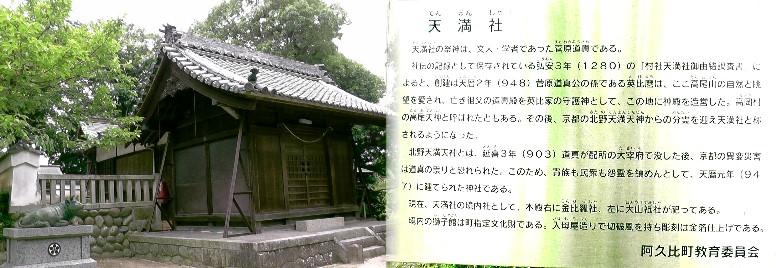 てん まん しゃ
天満社
天満社の祭神は、文人・学者であった菅原道真である。
社伝の記録として保存されている弘安3年(1280)の「村社天満社御由緒調責書」に
よると、創建は天暦2年(948)菅原道真公の孫である英比麿は、ここ高尾山の自然と眺
望を愛され、亡き祖父の道真殿を英比家の守護神として、この地に神殿を造営した。高岡村
の高尾天神と呼ばれたともある。その後、京都の北野天満天神からの分霊を迎え天満社と称
されるようになった。
北野天満天神とは、延喜3年(903)道真が配所の大宰府で没した後、京都の異変災害
は道真の祟りと恐れられた。このため、貴族も民衆も怨霊を鎮めんとして、天暦元年(94
7)に建てられた神社である。
現在、天満社の境内社として、本殿右に金比羅社、左に大山祗社が祀ってある。
境内の獅子館は町指定文化財である。入母屋造りで切破風を持ち彫刻は金箔仕上げである。
阿久比町教育委員会